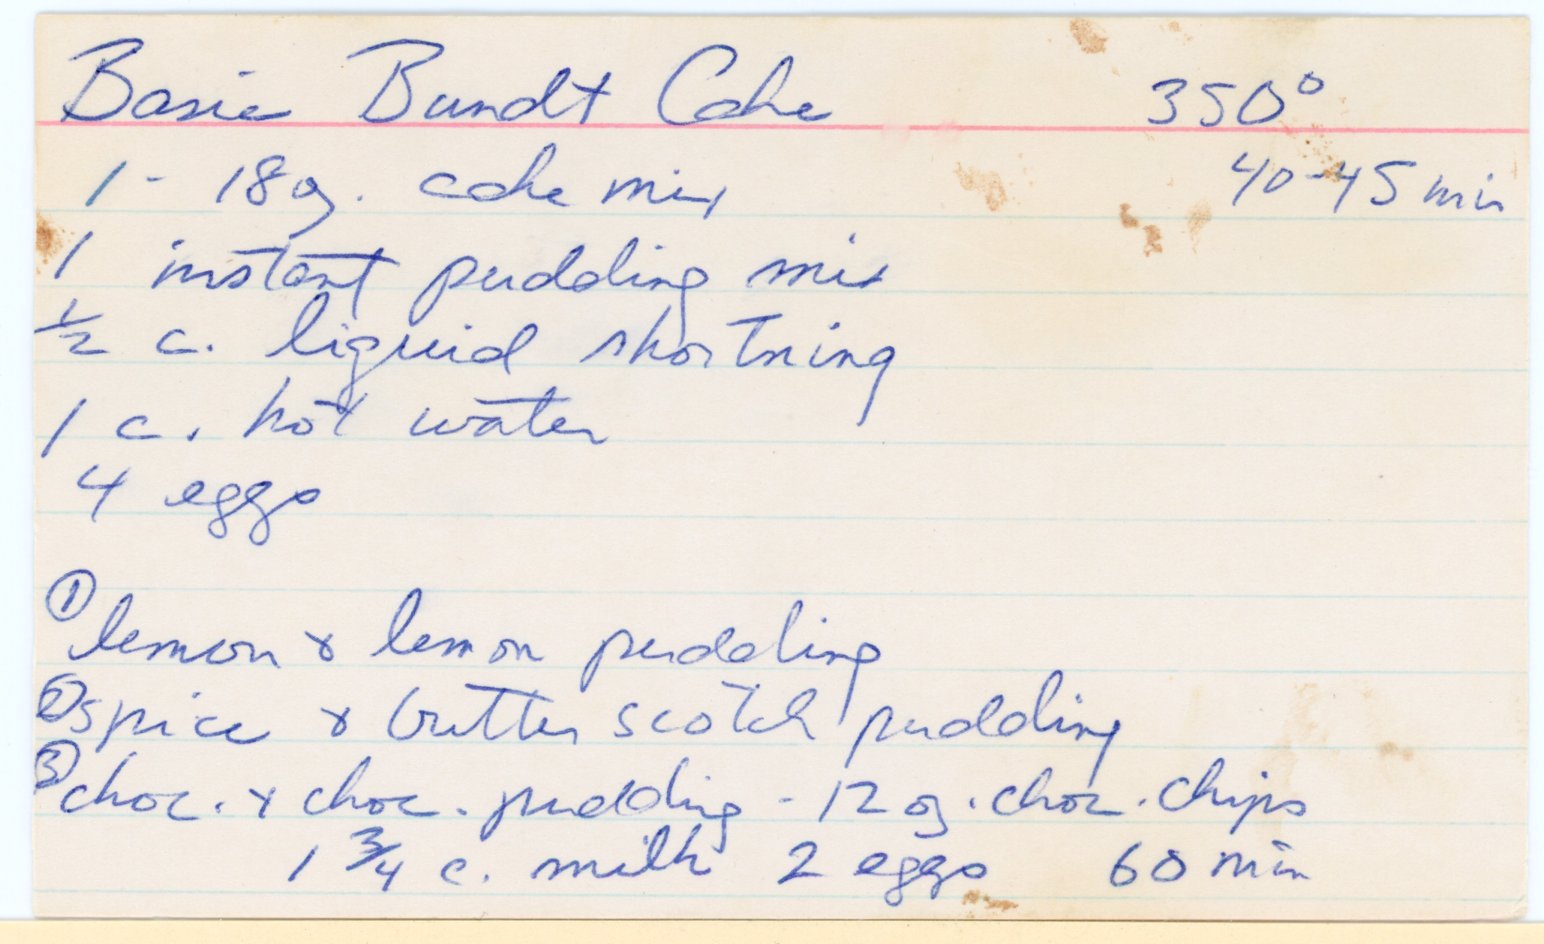 Basic Bundt Cake 350°
1 - 18 oz. cake mix 40-45 min
1 instant pudding mix
1/2 c. liquid shortning
1 c. hot water
4 eggs
① lemon & lemon pudding
② spice & butterscotch pudding
③ choc. & choc. pudding - 12 oz. choc. chips
1 3/4 c. milk 2 eggs 60 min